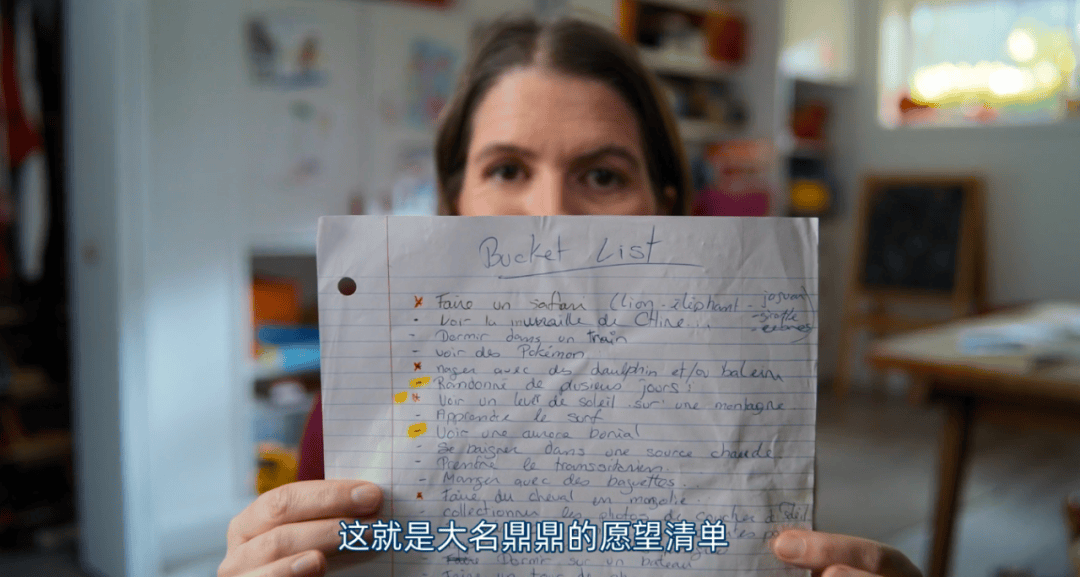 Bucket List
x Faire un safari (lion - éliphant - jaguar
- giraffe
- Voir la muraille de Chine
- zebres)
- Dormir dans un train
- voir des Pokémon
x nager avec des daulphin et/ou baleine
- Randonné de plusieurs jours!
x Voir un levé de soleil sur une montagne
- Apprendre le surf
- Voir une aurore borial
- Se baigner dans une source chaude
- Prendre le transsiberien
- Manger avec des baguettes...
x Faire du cheval en mongolie.
- collectionner les photos de coucher de soleil
这就是大名鼎鼎的愿望清单
Dormir sur un bateau
- Faire un tour de